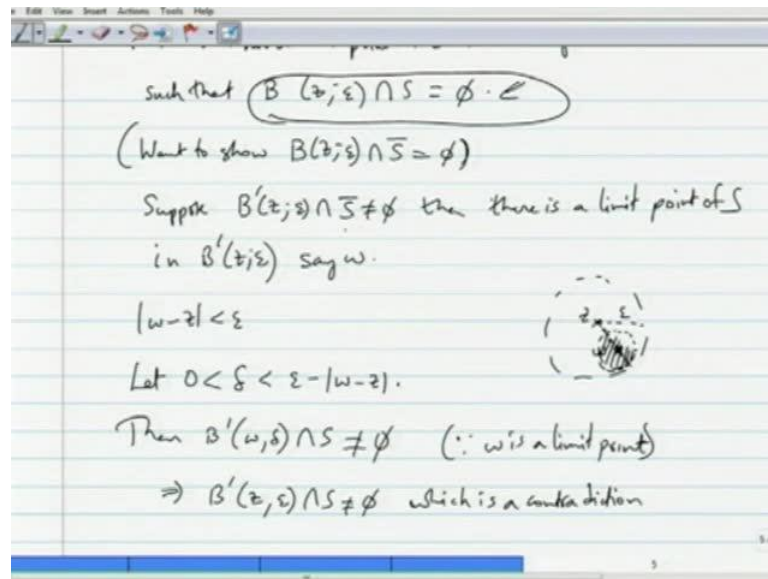 Edit View Insert Actions Tools Help
such that B (z;ε) ∩ S = ϕ.
(Want to show B(z;ε) ∩ S̅ = ϕ)
Suppose B'(z;ε) ∩ S̅ ≠ ϕ then there is a limit point of S
in B'(z;ε) say w.
|w-z| < ε
z ε
Let 0 < δ < ε - |w-z|.
Then B'(w,δ) ∩ S ≠ ϕ (∵ w is a limit point)
⇒ B'(z,ε) ∩ S ≠ ϕ which is a contradiction
5